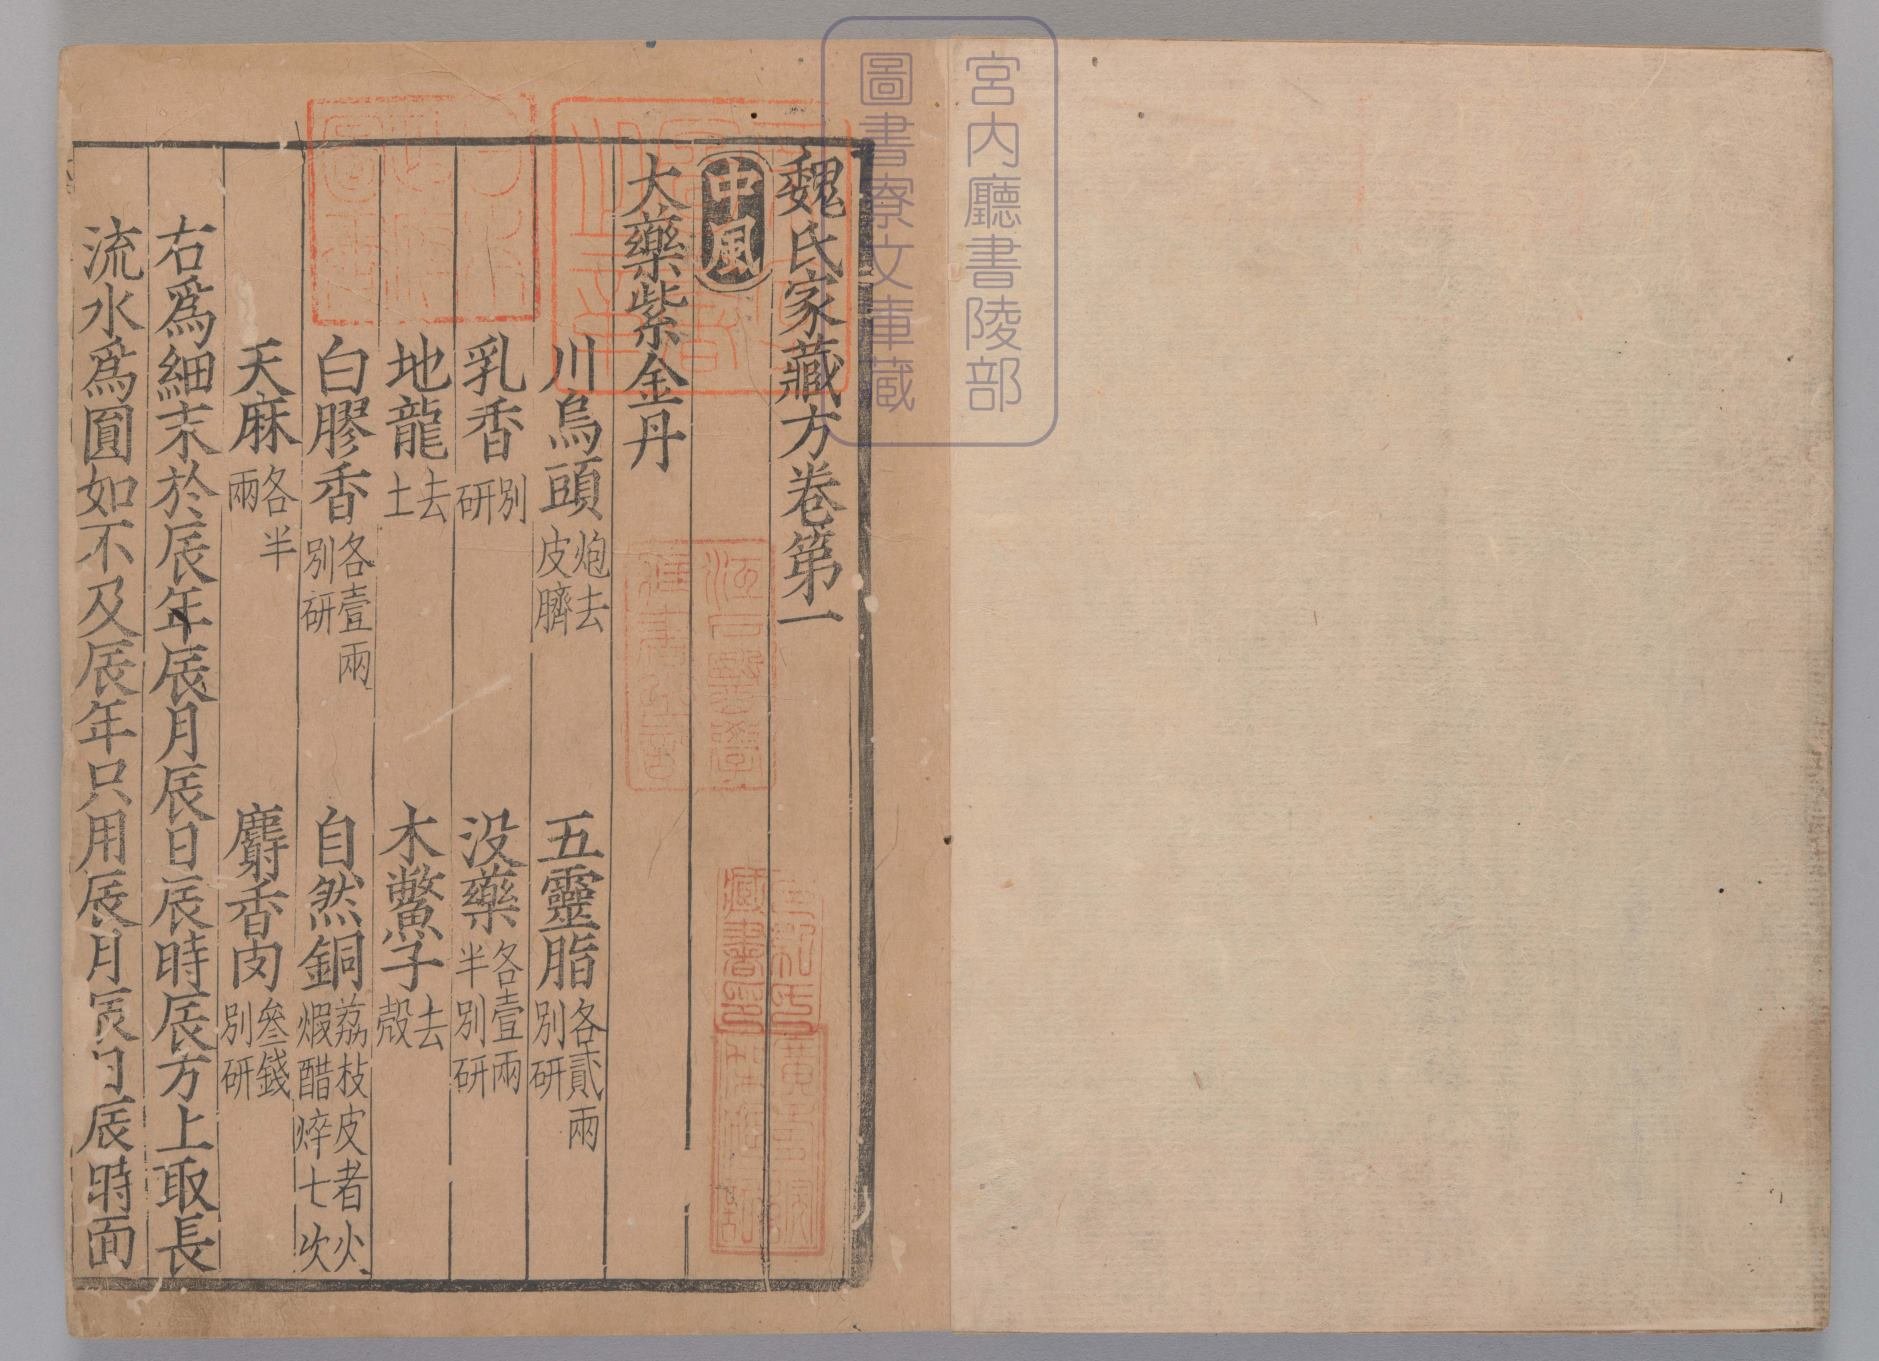 宮内廳書陵部
圖書寮文庫蔵
魏氏家藏方卷第一
中風
大藥紫金丹
川烏頭炮去皮臍 五靈脂各貳兩別研
乳香別研 没藥各壹兩半別研
地龍去土 木鱉子去殻
白膠香各壹兩別研 自然銅荔枝皮者火煆醋焠七次
天麻各半兩 麝香肉叄錢別研
右爲細末於辰年辰月辰日辰時辰方上取長
流水爲圓如不及辰年只用辰月辰日辰時面